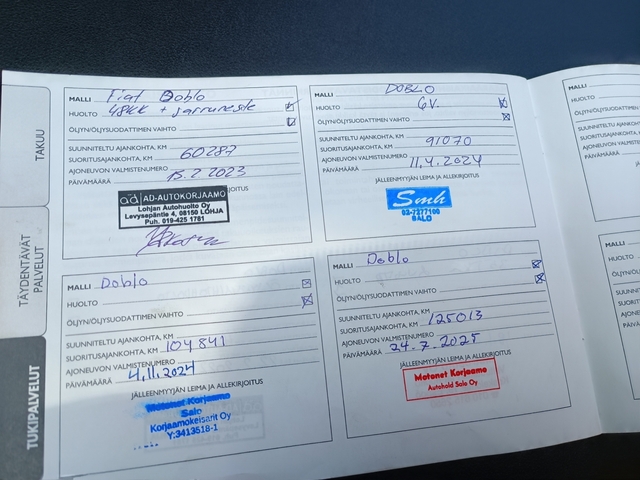 TAKUU
TÄYDENTÄVÄT
PALVELUT
TUKIPALVELUT
MALLI Fiat Doblo
HUOLTO 48KK + jarruneste
ÖLJYN/ÖLJYSUODATTIMEN VAIHTO
SUUNNITELTU AJANKOHTA, KM
SUORITUSAJANKOHTA, KM 60287
AJONEUVON VALMISTENUMERO
PÄIVÄMÄÄRÄ 15.2 2023
ad AD-AUTOKORJAAMO
Lohjan Autohuolto Oy
Levysepäntie 4, 08150 LOHJA
Puh. 019-425 1781
MALLI DOBLO
HUOLTO 6V.
ÖLJYN/ÖLJYSUODATTIMEN VAIHTO
SUUNNITELTU AJANKOHTA, KM
SUORITUSAJANKOHTA, KM 91070
AJONEUVON VALMISTENUMERO
PÄIVÄMÄÄRÄ 11.4.2024
JÄLLEENMYYJÄN LEIMA JA ALLEKIRJOITUS
Smh
02-7277100
SALO
MALLI Doblo
HUOLTO
ÖLJYN/ÖLJYSUODATTIMEN VAIHTO
SUUNNITELTU AJANKOHTA, KM
SUORITUSAJANKOHTA, KM 104841
AJONEUVON VALMISTENUMERO
PÄIVÄMÄÄRÄ 4.11.2024
JÄLLEENMYYJÄN LEIMA JA ALLEKIRJOITUS
Motonet Korjaamo
Salo
Korjaamokeisarit Oy
Y:3413518-1
MALLI Doblo
HUOLTO
ÖLJYN/ÖLJYSUODATTIMEN VAIHTO
SUUNNITELTU AJANKOHTA, KM
SUORITUSAJANKOHTA, KM 125013
AJONEUVON VALMISTENUMERO
PÄIVÄMÄÄRÄ 24.7.2025
JÄLLEENMYYJÄN LEIMA JA ALLEKIRJOITUS
Motonet Korjaamo
Autohold Salo Oy
MALLI
HUOLTO